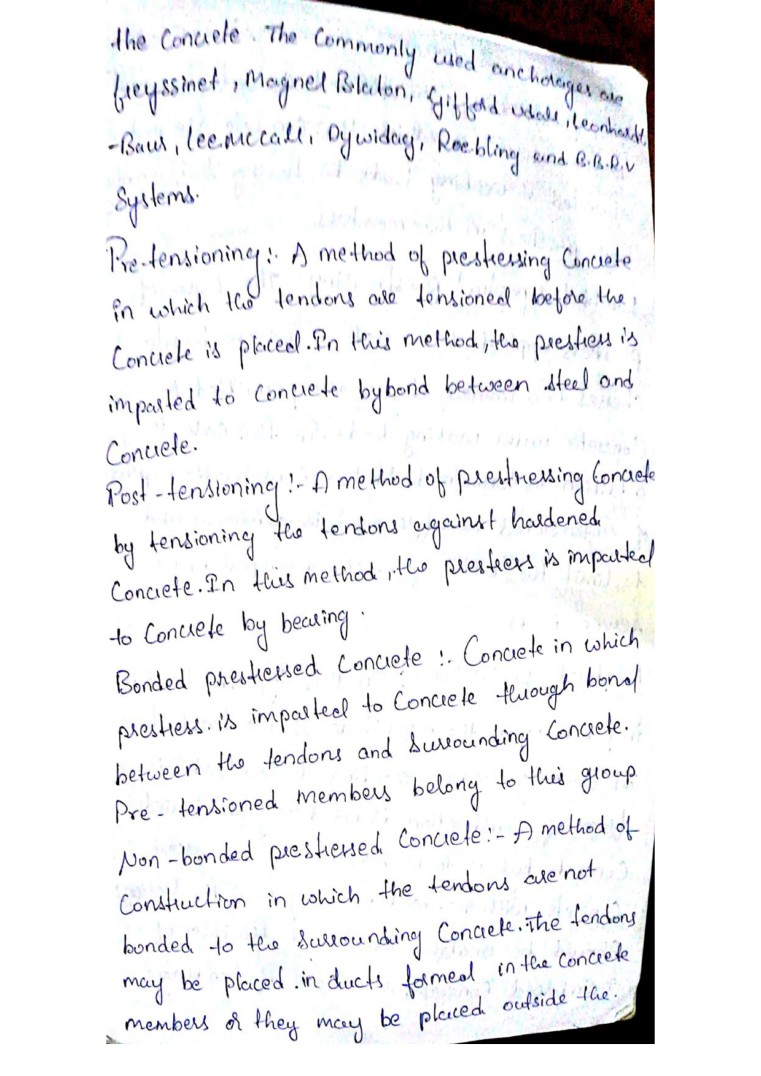 the Concrete. The Commonly used anchorages are
freyssinet, Magnel Blaton, Gifford Udall, Leonhardt,
-Baur, lee mccall, Dywidag, Roebling and B.B.R.V
Systems.
Pre-tensioning :- A method of prestressing Concrete
in which the tendons are tensioned before the
Concrete is placed. In this method, the prestress is
imparted to concrete by bond between steel and
Concrete.
Post-tensioning :- A method of prestressing Concrete
by tensioning the tendons against hardened
Concrete. In this method, the prestress is imparted
to Concrete by bearing.
Bonded prestressed Concrete :- Concrete in which
prestress is imparted to Concrete through bond
between the tendons and surrounding Concrete.
Pre-tensioned members belong to this group
Non-bonded prestressed Concrete :- A method of
Construction in which the tendons are not
bonded to the surrounding Concrete. The tendons
may be placed in ducts formed in the Concrete
members or they may be placed outside the.